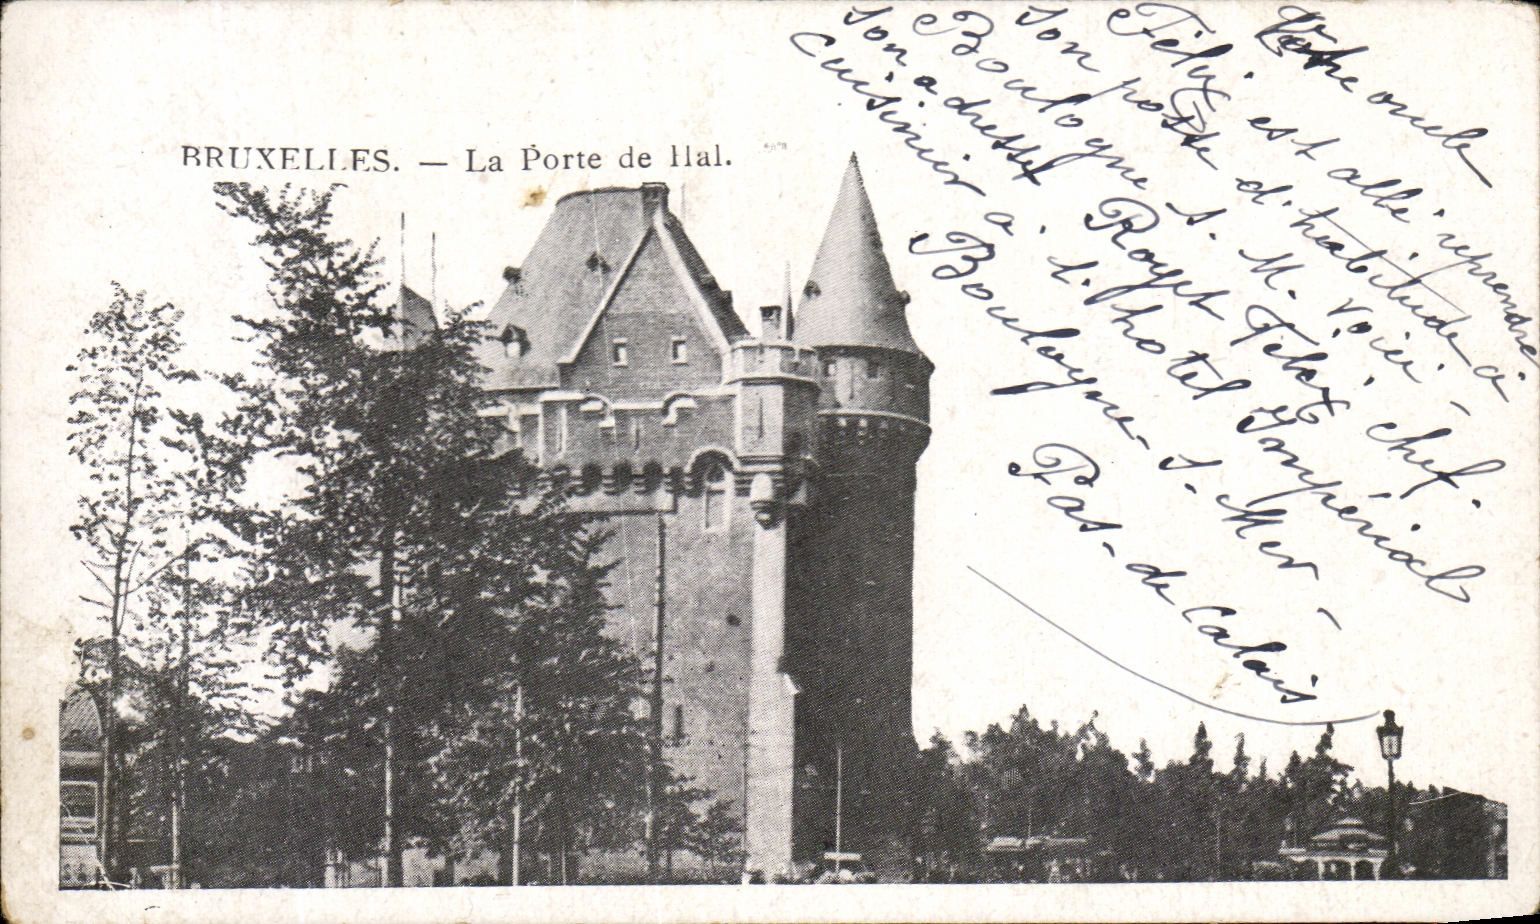 BRUXELLES. — La Porte de Hal.
Votre oncle
Félix est allé reprendre
son poste d'habitude à
Boulogne s. M. Voici
son adresse Royet Félix chef.
cuisinier a. l'hotel Impérial
Boulogne-s-Mer-
Pas-de Calais